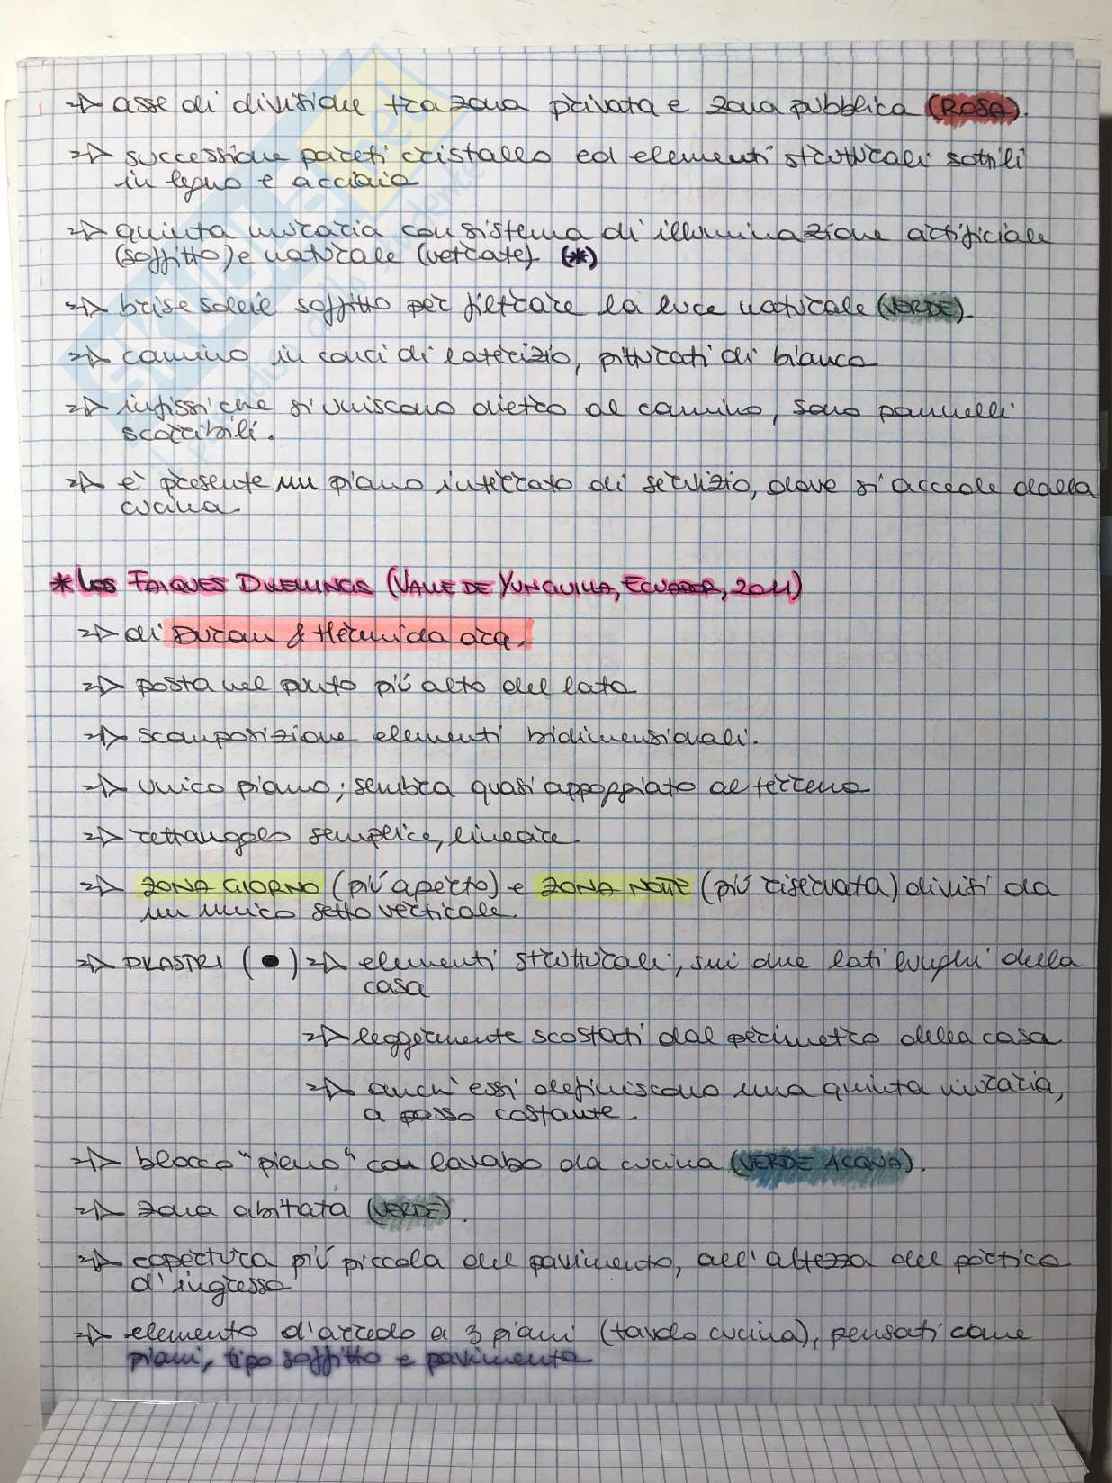 => asse di divisione tra zona privata e zona pubblica (ROSA).
=> successione pareti cristallo ed elementi strutturali sottili
in legno e acciaio
=> quinta muraria con sistema di illuminazione artificiale
(soffitto) e naturale (vetrate) (*)
=> brise soleie soffitto per filtrare la luce naturale (VERDE).
=> camino in conci di laterizio, pitturati di bianco
=> infissi che si uniscono dietro al camino, sono pannelli
scorribili.
=> è presente un piano interrato di servizio, dove si accede dalla
cucina.
* LOS FAIQUES DWELLINGS (VALLE DE YUNGUILLA, ECUADOR, 2011)
=> di Duran & Hermida arq.
=> posta nel punto più alto del lato
=> scomposizione elementi bidimensionali.
=> unico piano; sembra quasi appoggiato al terreno
=> rettangolo semplice, lineare
=> ZONA GIORNO (più aperto) e ZONA NOTTE (più riservata) divisi da
un unico setto verticale.
=> PILASTRI (●) => elementi strutturali, sui due lati lunghi della
casa
=> leggermente scostati dal perimetro della casa
=> anch'essi definiscono una quinta muraria,
a passo costante.
=> blocco "pieno" con lavabo da cucina (VERDE ACQUA).
=> zona abitata (VERDE).
=> copertura più piccola del pavimento, all'altezza del portico
d'ingresso
=> elemento d'arredo a 3 piani (tavolo cucina), pensati come
piani, tipo soffitto e pavimento